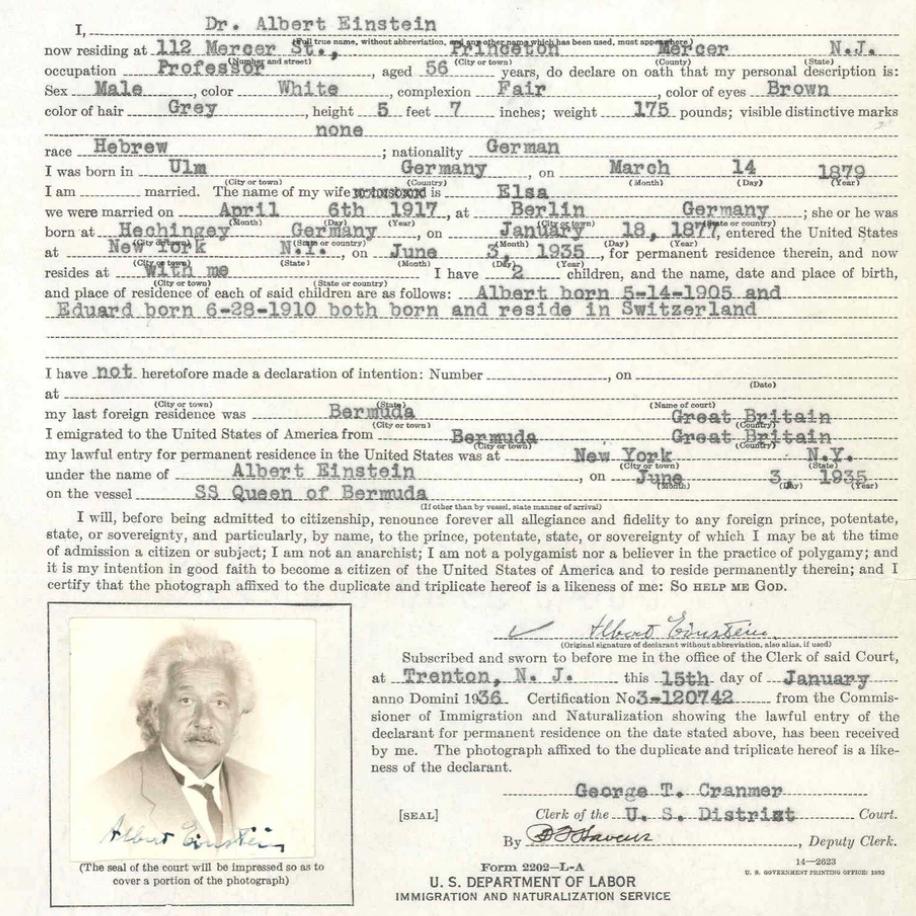 I, Dr. Albert Einstein
(Full true name, without abbreviation, and any other name which has been used, must appear here)
now residing at 112 Mercer St., Princeton Mercer N.J.
(Number and street) (City or town) (County) (State)
occupation Professor, aged 56 years, do declare on oath that my personal description is:
Sex Male, color White, complexion Fair, color of eyes Brown
color of hair Grey, height 5 feet 7 inches; weight 175 pounds; visible distinctive marks
none
race Hebrew; nationality German
I was born in Ulm Germany, on March 14 1879
(City or town) (Country) (Month) (Day) (Year)
I am married. The name of my wife or husband is Elsa
we were married on April 6th 1917, at Berlin Germany; she or he was
(Month) (Day) (Year) (City or town) (State or country)
born at Hechingey Germany, on January 18, 1877, entered the United States
(City or town) (State or country) (Month) (Day) (Year)
at New York N.Y., on June 3, 1935, for permanent residence therein, and now
(City or town) (State) (Month) (Day) (Year)
resides at with me I have 2 children, and the name, date and place of birth,
(City or town) (State or country)
and place of residence of each of said children are as follows: Albert born 5-14-1905 and
Eduard born 6-28-1910 both born and reside in Switzerland
I have not heretofore made a declaration of intention: Number, on
(Date)
at
(City or town) (State) (Name of court)
my last foreign residence was Bermuda Great Britain
(City or town) (Country)
I emigrated to the United States of America from Bermuda Great Britain
(City or town) (Country)
my lawful entry for permanent residence in the United States was at New York N.Y.
(City or town) (State)
under the name of Albert Einstein, on June 3, 1935
(Month) (Day) (Year)
on the vessel SS Queen of Bermuda
(If other than by vessel, state manner of arrival)
I will, before being admitted to citizenship, renounce forever all allegiance and fidelity to any foreign prince, potentate,
state, or sovereignty, and particularly, by name, to the prince, potentate, state, or sovereignty of which I may be at the time
of admission a citizen or subject; I am not an anarchist; I am not a polygamist nor a believer in the practice of polygamy; and
it is my intention in good faith to become a citizen of the United States of America and to reside permanently therein; and I
certify that the photograph affixed to the duplicate and triplicate hereof is a likeness of me: SO HELP ME GOD.
Albert Einstein
(Original signature of declarant without abbreviation, also alias, if used)
Subscribed and sworn to before me in the office of the Clerk of said Court,
at Trenton, N. J. this 15th day of January
anno Domini 1936 Certification No 3-120742 from the Commis-
sioner of Immigration and Naturalization showing the lawful entry of the
declarant for permanent residence on the date stated above, has been received
by me. The photograph affixed to the duplicate and triplicate hereof is a like-
ness of the declarant.
George T. Cranmer
[SEAL] Clerk of the U. S. District Court.
By, Deputy Clerk.
Albert Einstein
(The seal of the court will be impressed so as to
cover a portion of the photograph)
Form 2202-L-A
U. S. DEPARTMENT OF LABOR
IMMIGRATION AND NATURALIZATION SERVICE
14-2623
U. S. GOVERNMENT PRINTING OFFICE: